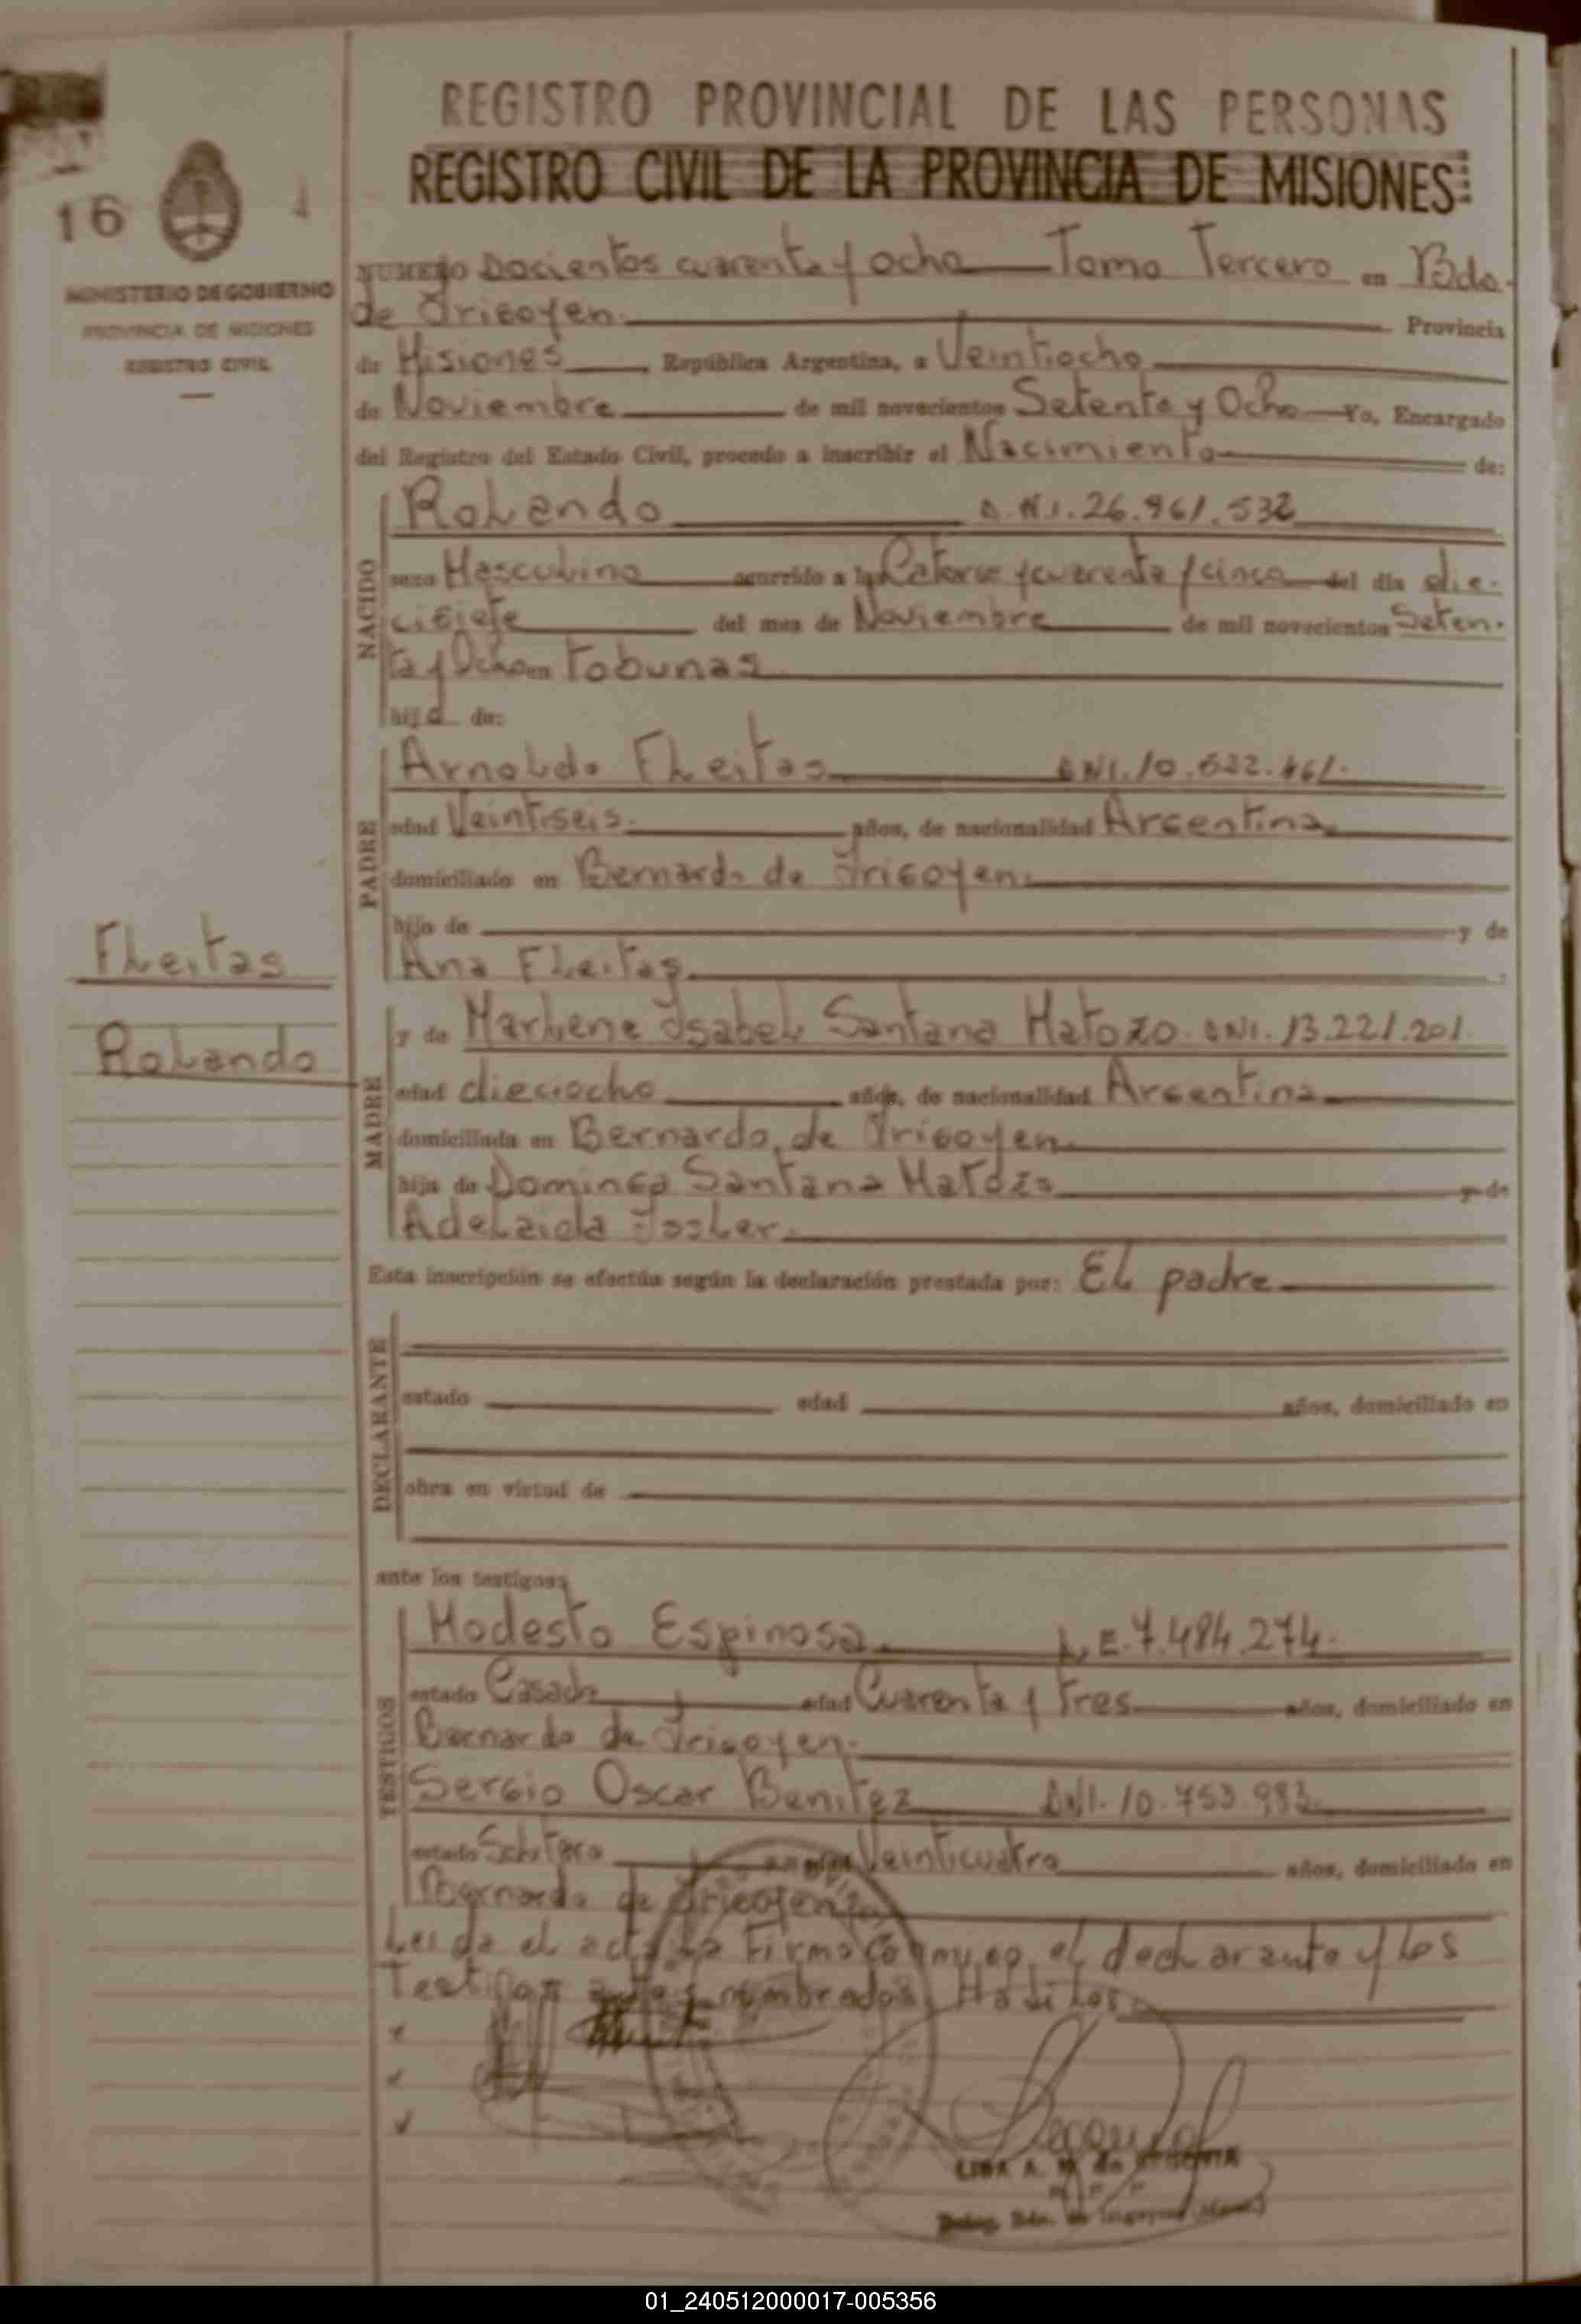 REGISTRO PROVINCIAL DE LAS PERSONAS
REGISTRO CIVIL DE LA PROVINCIA DE MISIONES
16
MINISTERIO DE GOBIERNO
PROVINCIA DE MISIONES
REGISTRO CIVIL
NUMERO Docientos cuarenta y ocho Tomo Tercero en Bdo.
de Irigoyen. Provincia
de Misiones, República Argentina, a Veintiocho
de Noviembre de mil novecientos Setenta y Ocho Yo, Encargado
del Registro del Estado Civil, procedo a inscribir el Nacimiento de:
NACIDO
Rolando D.N.I. 26.961.532
sexo Masculino ocurrido a las Catorse y cuarenta y cinco del día die-
cisiete del mes de Noviembre de mil novecientos Seten-
ta y Ocho en Tobunas
hijo de:
PADRE
Arnoldo Fleitas DNI. 10.622.461.
edad Veintiseis. años, de nacionalidad Argentina
domiciliado en Bernardo de Irigoyen.
hijo de y de
Ana Fleitas.
Fleitas
Rolando
MADRE
y de Marlene Isabel Santana Matozo DNI. 13.221.201
edad dieciocho años, de nacionalidad Argentina
domiciliada en Bernardo de Irigoyen.
hija de Dominga Santana Matozo y de
Adelaida
Esta inscripción se efectúa según la declaración prestada por: El padre
DECLARANTE
estado edad años, domiciliado en
obra en virtud de
ante los testigos:
TESTIGOS
Modesto Espinosa. L.E. 7.484.274.
estado Casado edad Cuarenta y Tres años, domiciliado en
Bernardo de Irigoyen.
Sergio Oscar Benitez DNI. 10.753.983
estado Soltero Veinticuatro años, domiciliado en
Bernardo de Irigoyen
Leida el acta la Firma Conmigo, el declarante y los
Testigos antes nombrados
01_240512000017-005356